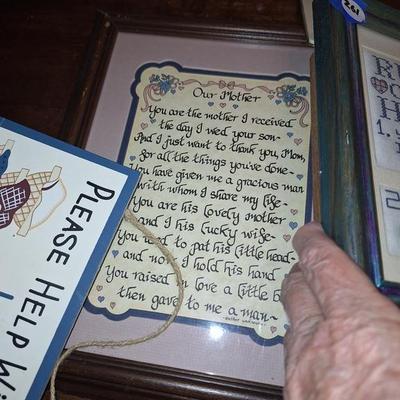 Our Mother
You are the mother I received
the day I wed your son~
And I just want to thank you, Mom,
for all the things you've done~
you have given me a gracious man
with whom I share my life~
You are his lovely mother
and I his lucky wife~
You used to pat his little head~
and now I hold his hand
You raised in love a little
then gave to me a man~
PLEASE HELP
261
R
O
H
1.
2